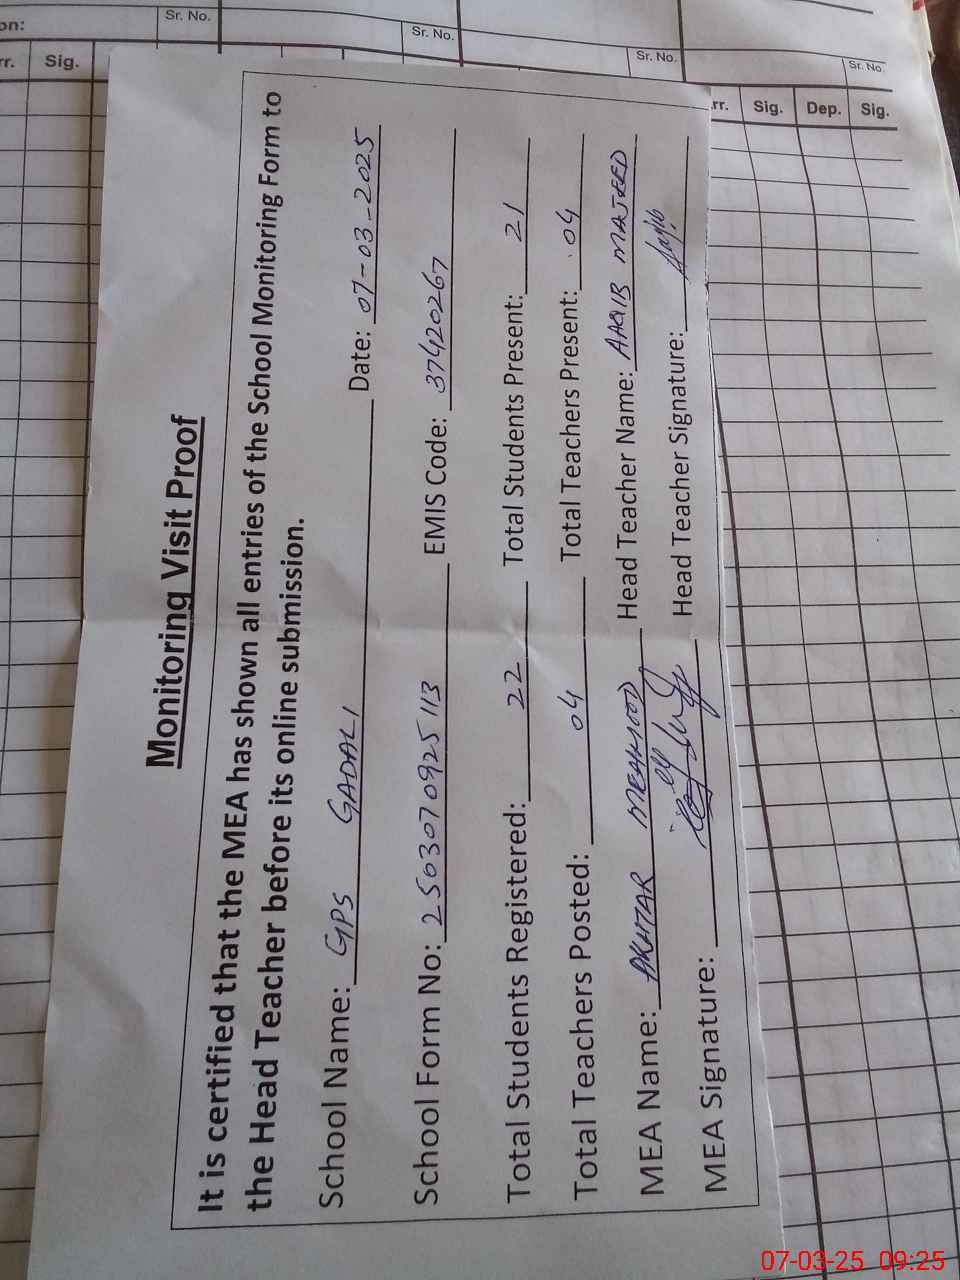 on:
Sr. No.
Sr. No.
Sr. No.
Sr. No.
rr. Sig.
rr. Sig. Dep. Sig.
Monitoring Visit Proof
It is certified that the MEA has shown all entries of the School Monitoring Form to
the Head Teacher before its online submission.
School Name: GPS GADALI Date: 07-03-2025
School Form No: 2503070925113 EMIS Code: 37420267
Total Students Registered: 22 Total Students Present: 21
Total Teachers Posted: 04 Total Teachers Present: 04
MEA Name: AKHTAR MEAHMOOD Head Teacher Name: AAQIB MAJEED
MEA Signature: Head Teacher Signature: Aaqib
07-03-25 09:25